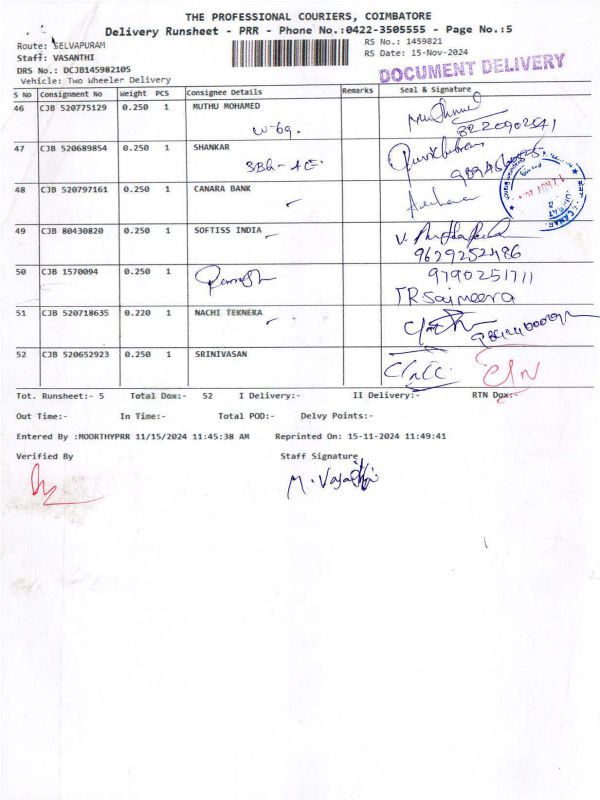 THE PROFESSIONAL COURIERS, COIMBATORE
Delivery Runsheet - PRR - Phone No.:0422-3505555 - Page No.:5
Route: SELVAPURAM
RS No.: 1459821
Staff: VASANTHI
RS Date: 15-Nov-2024
DRS No.: DCJB145982105
DOCUMENT DELIVERY
Vehicle: Two Wheeler Delivery
S No Consignment No Weight PCS Consignee Details Remarks Seal & Signature
46 CJB 520775129 0.250 1 MUTHU MOHAMED
47 CJB 520689854 0.250 1 SHANKAR
48 CJB 520797161 0.250 1 CANARA BANK
49 CJB 80430820 0.250 1 SOFTISS INDIA
9629252486
50 CJB 1570094 0.250 1
9790251711
TRSaimeera
51 CJB 520718635 0.220 1 NACHI TEKNEKA
52 CJB 520652923 0.250 1 SRINIVASAN
Tot. Runsheet:- 5 Total Dox:- 52 I Delivery:- II Delivery:- RTN Dox:-
Out Time:- In Time:- Total POD:- Delvy Points:-
Entered By :MOORTHYPRR 11/15/2024 11:45:38 AM Reprinted On: 15-11-2024 11:49:41
Verified By Staff Signature